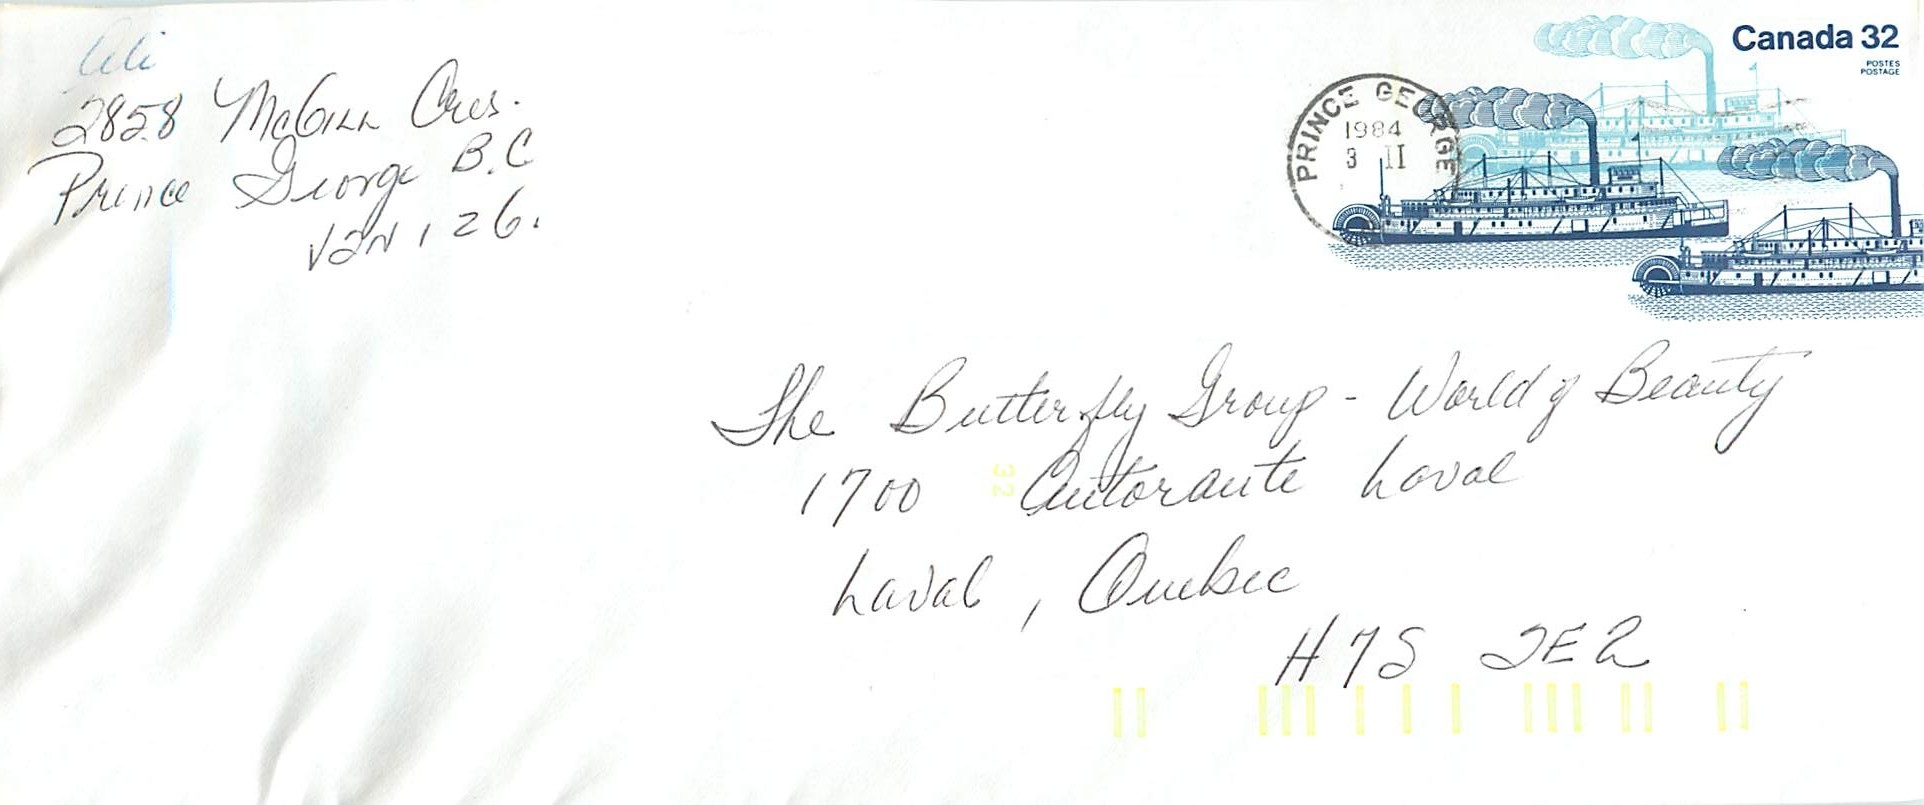 Ali
2858 McGill Cres.
Prince George B.C
V2N 1Z6.
PRINCE GEORGE
1984
3 II
Canada 32
POSTES
POSTAGE
The Butterfly Group - World of Beauty
1700 Autoroute Laval
32
Laval, Quebec
H7S 2E2